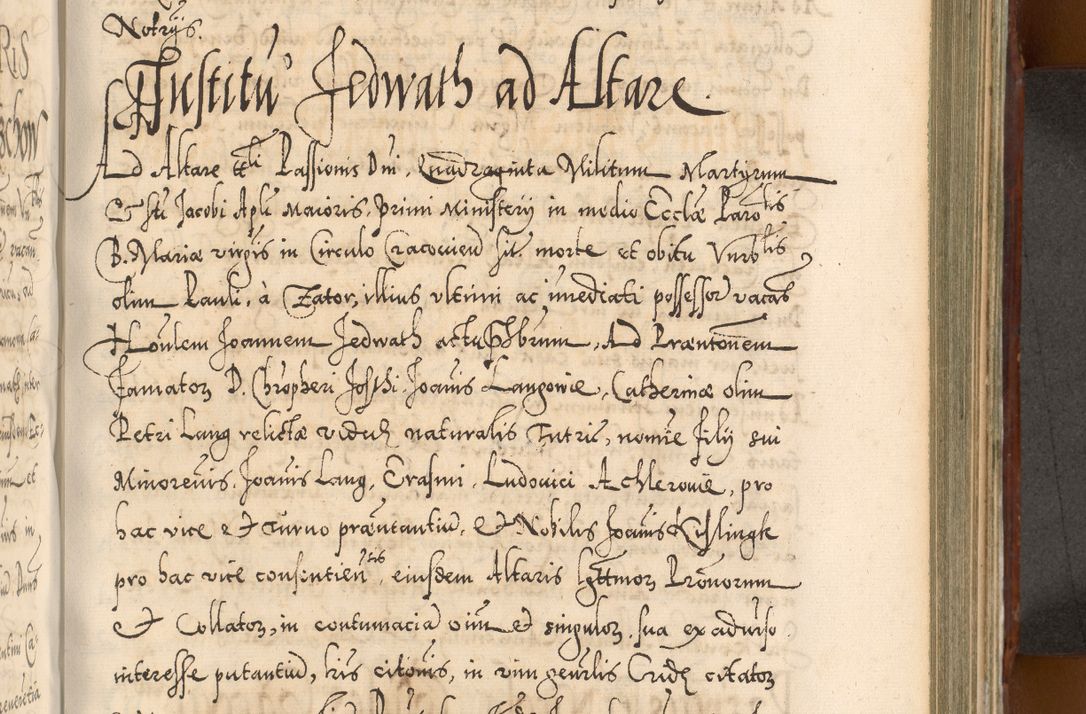 Notrijs.
Institu' Jedwath ad Altare
Ad Altare ttli Passionis Dni, Quadraginta Militum Martyrum
Et Sti Jacobi Apli Maioris, primi Ministerij in medio Ecclæ Parolis
B. Mariæ virgis in Circulo Cracovien sit. morte et obitu
olim Pauli, à Zator, illius vltimi ac imediati possessor vacas
Joannem Jedwath actu Phbrum, Ad Præntonem
Famator D. Chropheri Josphi Joanis Langowie, Catherinæ olim
Petri Lang relictæ viduæ naturalis Tutris, nomie filij sui
Minoreñis, Joanis Lang, Erasmi, Ludovici Achlerowie, pro
hac vice et turno præntantiu, et Nobilis Joanis Kislingk
pro hac vice consentien, eiusdem Altaris lgttmor Pronorum
et Collator, in contumacia oim et singulor sua ex aduerso
interesse putantiu, hris citonis, in vim genrlis Cridæ citator